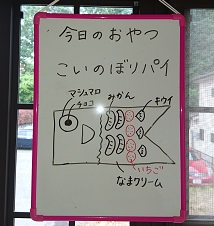 今日のおやつ
こいのぼりパイ
マシュマロ
チョコ
みかん
キウイ
いちご
なまクリーム